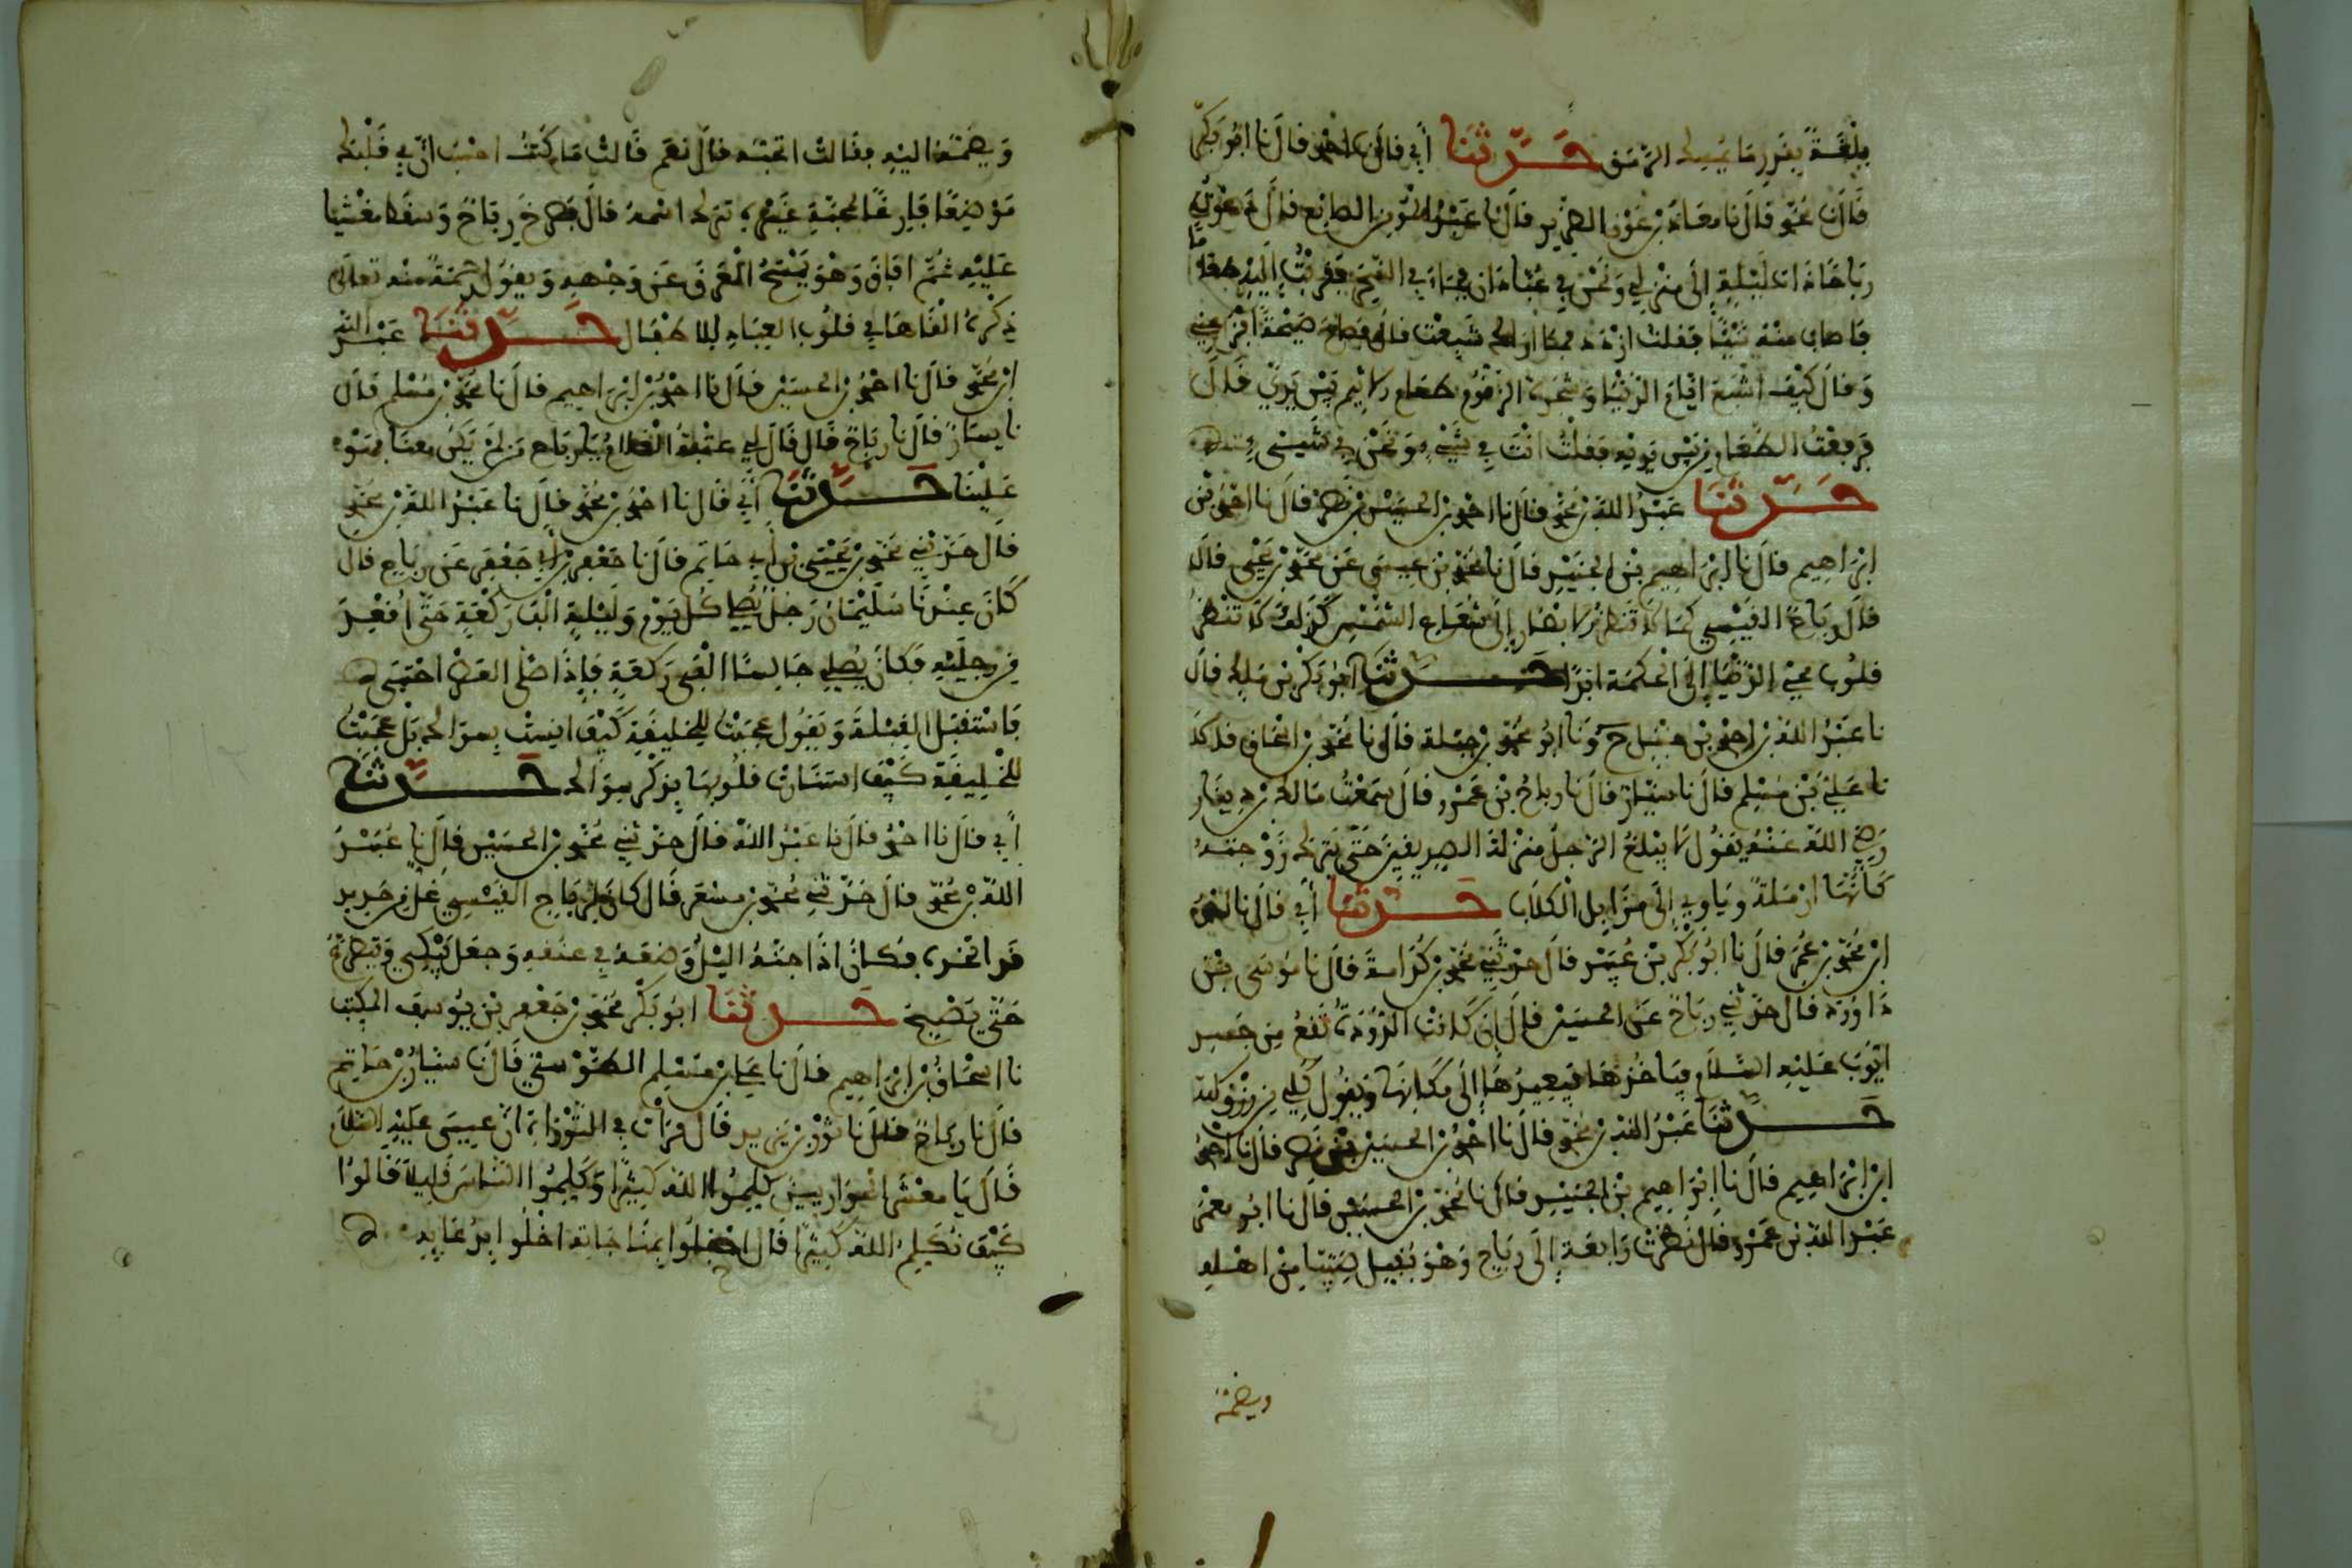 بلغة بقدر ما يمسك الرمق حدثنا أبي قال نا احمد قال نا ابو بكر
قال نا محمد قال نا معاذ بن عون الضرير قال نا عبد المومن الصايغ قال دعوت
رباحا ذات ليلة إلى منزلي ونحن في عبادان فجاء في السحر فقربت إليه طعاما
فاصاب منه شيئا فقلت ازدد فما اراك شبعت قال فصاح صيحة افزعني
وقال كيف اشبع ايام الدنيا وشجرة الزقوم طعام الاثيم بين يدي قال
فرفعت الطعام من بين يديه فقلت انت في شيء ونحن في شيء
حدثنا عبد الله بن محمد قال نا احمد بن الحسين بن نصر قال نا احمد بن
ابراهيم قال نا إبراهيم بن الجنيد قال نا محمد بن عيسى عن محمد بن يحيى قال
قال رباح القيسي كما لا تنظر الابصار إلى شعاع الشمس كذلك لا تنظر
قلوب محبي الدنيا إلى الحكمة ابدا حدثنا ابو بكر بن مالك قال
نا عبد الله بن احمد بن حنبل ح ونا ابو محمد بن جبلة قال نا محمد بن اسحاق قالا
نا علي بن مسلم قال نا سيار قال نا رباح بن عمرو قال سمعت مالك بن دينار
رضي الله عنه يقول لا يبلغ الرجل منزلة الصديقين حتى يترك زوجته
كأنها ارملة وياوي إلى مزابل الكلاب حدثنا أبي قال نا احمد
ابن محمد بن عمر قال نا ابو بكر بن عبيد قال حدثني محمد بن قدامة قال نا موسى بن
داوود قال حدثني رباح عن الحسين قال ان كانت الدودة تقع من جسد
ايوب عليه السلام فياخذها فيعيدها إلى مكانها ويقول كلي من رزق الله
حدثنا عبد الله بن محمد قال نا احمد بن الحسين بن نصر قال نا احمد
ابن ابراهيم قال نا إبراهيم بن الجنيد قال نا محمد بن الحسين قال نا ابو معمر
عبد الله بن عمرو قال نظرت رابعة إلى رباح وهو يقبل صبيا من اهله
ويضمه
ويضمه اليه فقالت اتحبه قال نعم قالت ما كنت احسب ان في قلبك
موضعا فارغا لمحبة غيره تبرك اسمه قال فصرخ رباح وسقط مغشيا
عليه ثم افاق وهو يمسح العرق عن وجهه ويقول رحمة منه تعلى
ذكره القاها في قلوب العباد للاطفال حدثنا عبد الله
ابن محمد قال نا احمد بن الحسين قال نا احمد بن ابراهيم قال نا محمد بن مسلم قال
نا سيار قال نا رباح قال قال لي عتبة الغلام يا رباح من لم يكن معنا فهو
علينا حدثنا أبي قال نا احمد بن محمد قال نا عبد الله بن محمد
قال حدثني محمد بن يحيى بن أبي حاتم قال نا جعفر بن أبي جعفر عن رباح قال
كان عندنا سليمان رجل يصلي كل يوم وليلة الف ركعة حتى أقعد
من رجليه فكان يصلي جالسا الف ركعة فإذا صلى العصر احتبى
فاستقبل القبلة ويقول عجبت للخليقة كيف انست بسواك بل عجبت
للخليقة كيف استنارت قلوبها بذكر سواك حدثنا
أبي قال نا احمد قال نا عبد الله قال حدثني محمد بن الحسين قال نا عبيد
الله بن محمد قال حدثني محمد بن مسعر قال كان لرباح القيسي غل من حديد
قد اتخذه فكان إذا جنه اليل وضعه في عنقه وجعل يبكي ويتضرع
حتى يصبح حدثنا ابو بكر محمد بن جعفر بن يوسف المكتب
نا اسحاق بن ابراهيم قال نا علي بن مسلم الطوسي قال نا سيار بن حاتم
قال نا رباح قال نا ثور بن يزيد قال قرات في التوراة ان عيسى عليه السلام
قال يا معشر الحواريين كلموا الله كثيرا وكلموا الناس قليلا قالوا
كيف نكلم الله كثيرا قال اخلوا بمناجاته اخلوا بدعايه